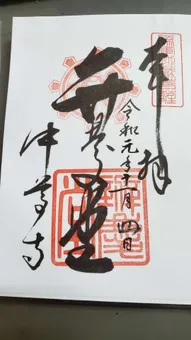 奉拝
令和元年十一月四日
弁慶堂
中尊寺